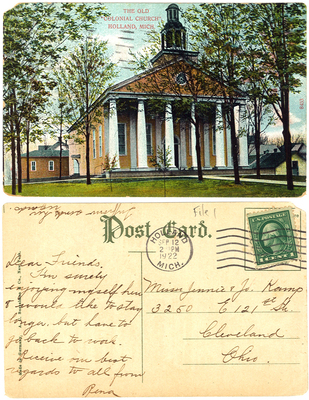 THE OLD
COLONIAL CHURCH
HOLLAND, MICH.
File 1
Post Card.
HOLLAND
SEP 12
2 PM
1922
MICH.
Dear Friends,
I'm surely
enjoying myself here
& would like to stay
longer, but have to
go back to work.
Receive our best
regards to all from
Rena
Misses Jennie & Jo. Kamp
3250 E 121st St.
Cleveland
Ohio.